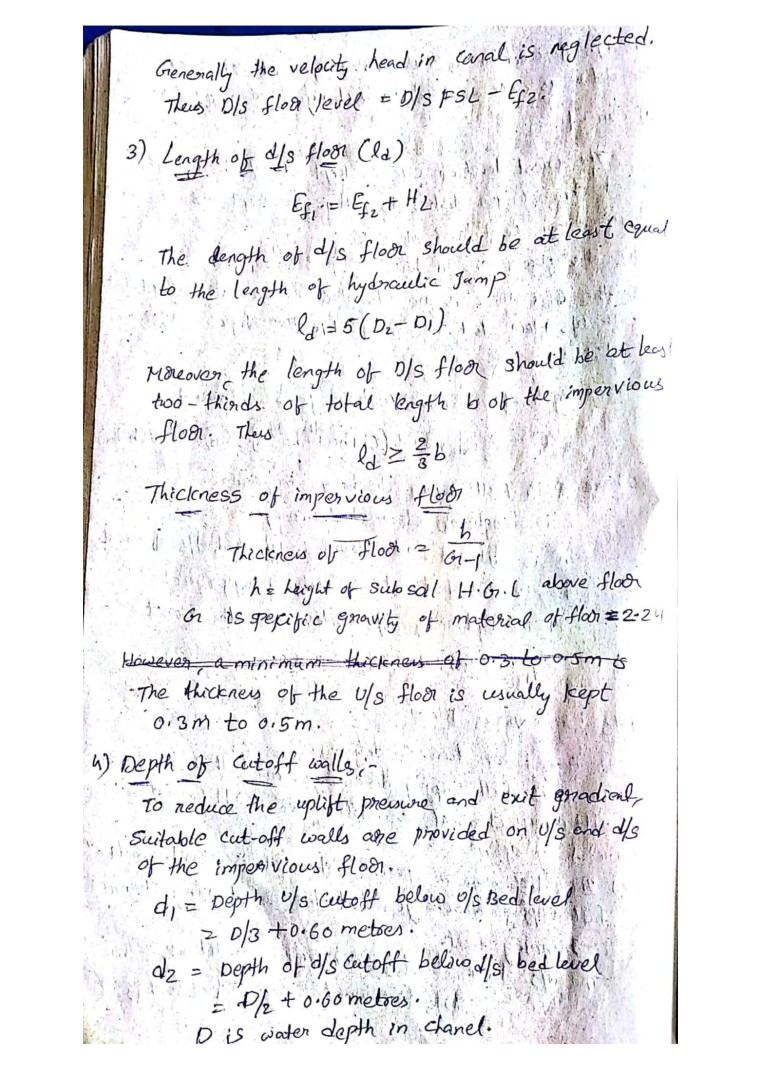 Generally the velocity head in canal is neglected.
Thus D/s floor level = D/s FSL - Ef2.
3) Length of d/s floor (ld)
Ef1 = Ef2 + HL
The length of d/s floor should be at least equal
to the length of hydraulic Jump
ld = 5(D2-D1)
Moreover, the length of D/s floor should be at leas
two-thirds of total length b of the impervious
floor. Thus
ld ≥ 2/3 b
Thickness of impervious floor
Thickness of floor = h/(G-1)
h = height of subsoil H.G.L above floor
G is specific gravity of material of floor = 2.24
However, a minimum thickness of 0.3 to 0.5m is
- The thickness of the U/s floor is usually kept
0.3m to 0.5m.
4) Depth of Cutoff walls:-
To reduce the uplift pressure and exit gradient,
Suitable cut-off walls are provided on U/s and d/s
of the impervious floor.
d1 = Depth U/s Cutoff below U/s Bed level
= D/3 + 0.60 metres.
d2 = Depth of d/s Cutoff below d/s bed level
= D/2 + 0.60 metres.
D is water depth in chanel.